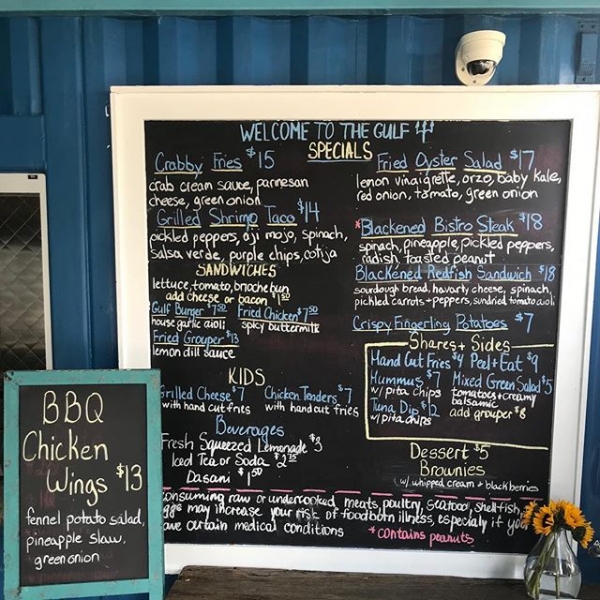 WELCOME TO THE GULF
SPECIALS
Crabby Fries $15
crab cream sauce, parmesan
cheese, green onion
Grilled Shrimp Taco $14
pickled peppers, aji mojo, spinach,
salsa verde, purple chips, cotija
SANDWICHES
lettuce, tomato, brioche bun
add cheese or bacon $1.50
Gulf Burger $7.50
house garlic aioli
Fried Chicken $7.50
spicy buttermilk
Fried Grouper $13
lemon dill sauce
KIDS
Grilled Cheese $7
with hand cut fries
Chicken Tenders $7
with hand cut fries
Beverages
Fresh Squeezed Lemonade $3
Iced Tea or Soda
Dasani $1.50
Fried Oyster Salad $17
lemon vinaigrette, orzo, baby kale,
red onion, tomato, green onion
*Blackened Bistro Steak $18
spinach, pineapple, pickled peppers,
radish, toasted peanut
Blackened Redfish Sandwich $18
sourdough bread, havarty, cheese, spinach,
pickled carrots + peppers, sundried tomato aioli
Crispy Fingerling Potatoes $7
Shares + Sides
Hand Cut Fries $4
Peel + Eat $9
Hummus $7
w/ pita chips
Mixed Green Salad $5
tomatoes + creamy
balsamic
add grouper $8
Tuna Dip $12
w/ pita chips
Dessert $5
Brownies
w/ whipped cream + blackberries
consuming raw or undercooked meats, poultry, seafood, shellfish,
eggs may increase your risk of foodborn illness, especialy if you
have certain medical conditions
*contains peanuts
BBQ
Chicken
Wings $13
fennel potato salad,
pineapple slaw,
green onion